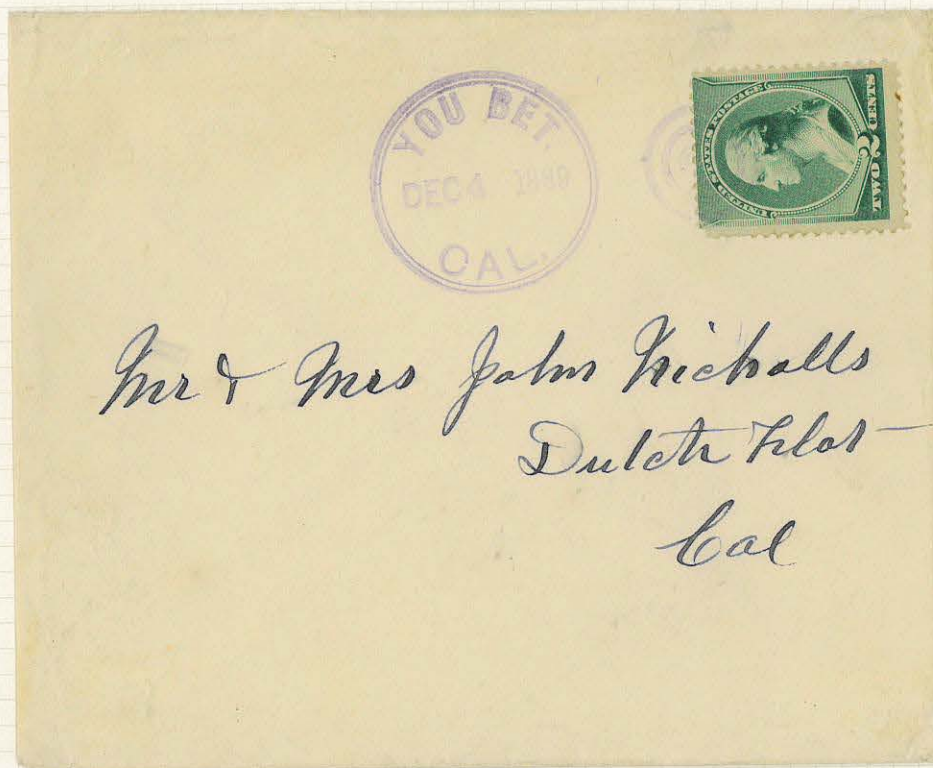 YOU BET.
DEC 4 1889
CAL.
UNITED STATES POSTAGE
2
TWO CENTS
Mr & Mrs John Nicholls
Dutch Flat
Cal